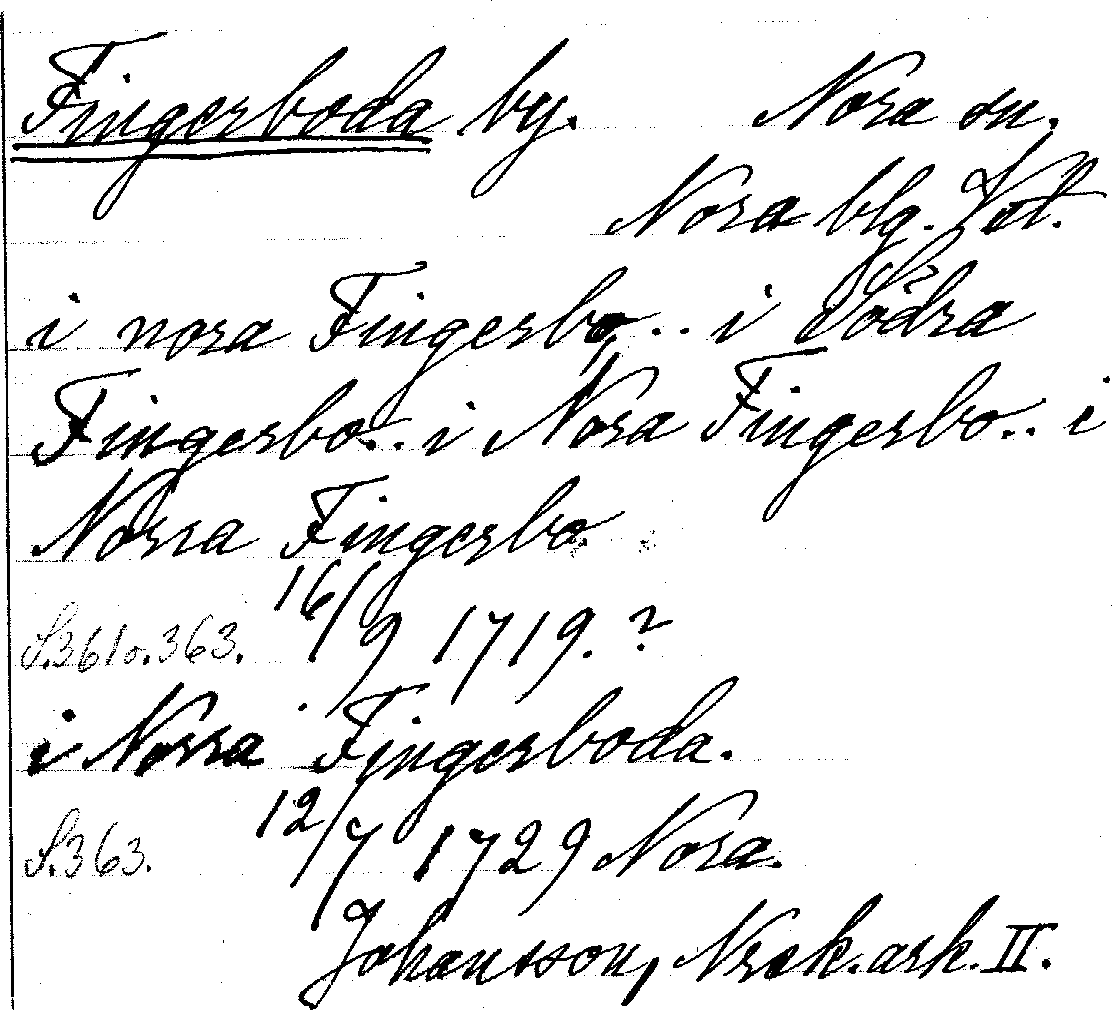 Fingerboda by. Nora sn.
Nora blg. Vstl.
i nora Fingerbo .. i Södra
Fingerbo .. i Nora Fingerbo .. i
Norra Fingerbo.
S.361 o. 363. 16/9 1719. ?
i Norra Fingerboda.
S.363. 12/7 1729 Nora.
Johansson, Norak. ark. II.